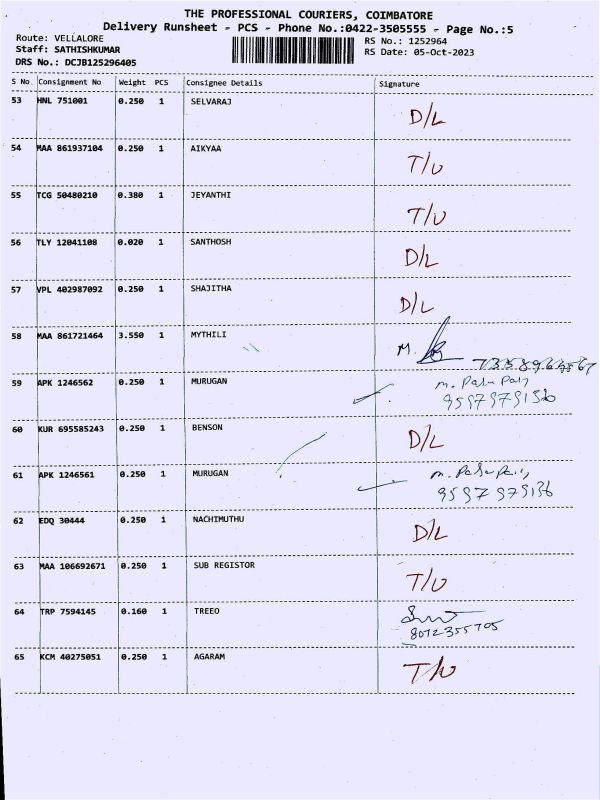 THE PROFESSIONAL COURIERS, COIMBATORE
Delivery Runsheet - PCS - Phone No.:0422-3505555 - Page No.:5
Route: VELLALORE RS No.: 1252964
Staff: SATHISHKUMAR RS Date: 05-Oct-2023
DRS No.: DCJB125296405
S No Consignment No Weight PCS Consignee Details Signature
53 HNL 751001 0.250 1 SELVARAJ D/L
54 MAA 861937104 0.250 1 AIKYAA T/U
55 TCG 50480210 0.380 1 JEYANTHI T/U
56 TLY 12041108 0.020 1 SANTHOSH D/L
57 VPL 402987092 0.250 1 SHAJITHA D/L
58 MAA 861721464 3.550 1 MYTHILI M.
59 APK 1246562 0.250 1 MURUGAN m.
60 KUR 695585243 0.250 1 BENSON D/L
61 APK 1246561 0.250 1 MURUGAN m.
62 EDQ 30444 0.250 1 NACHIMUTHU D/L
63 MAA 106692671 0.250 1 SUB REGISTOR T/U
64 TRP 7594145 0.160 1 TREEO
8072355705
65 KCM 40275051 0.250 1 AGARAM T/U